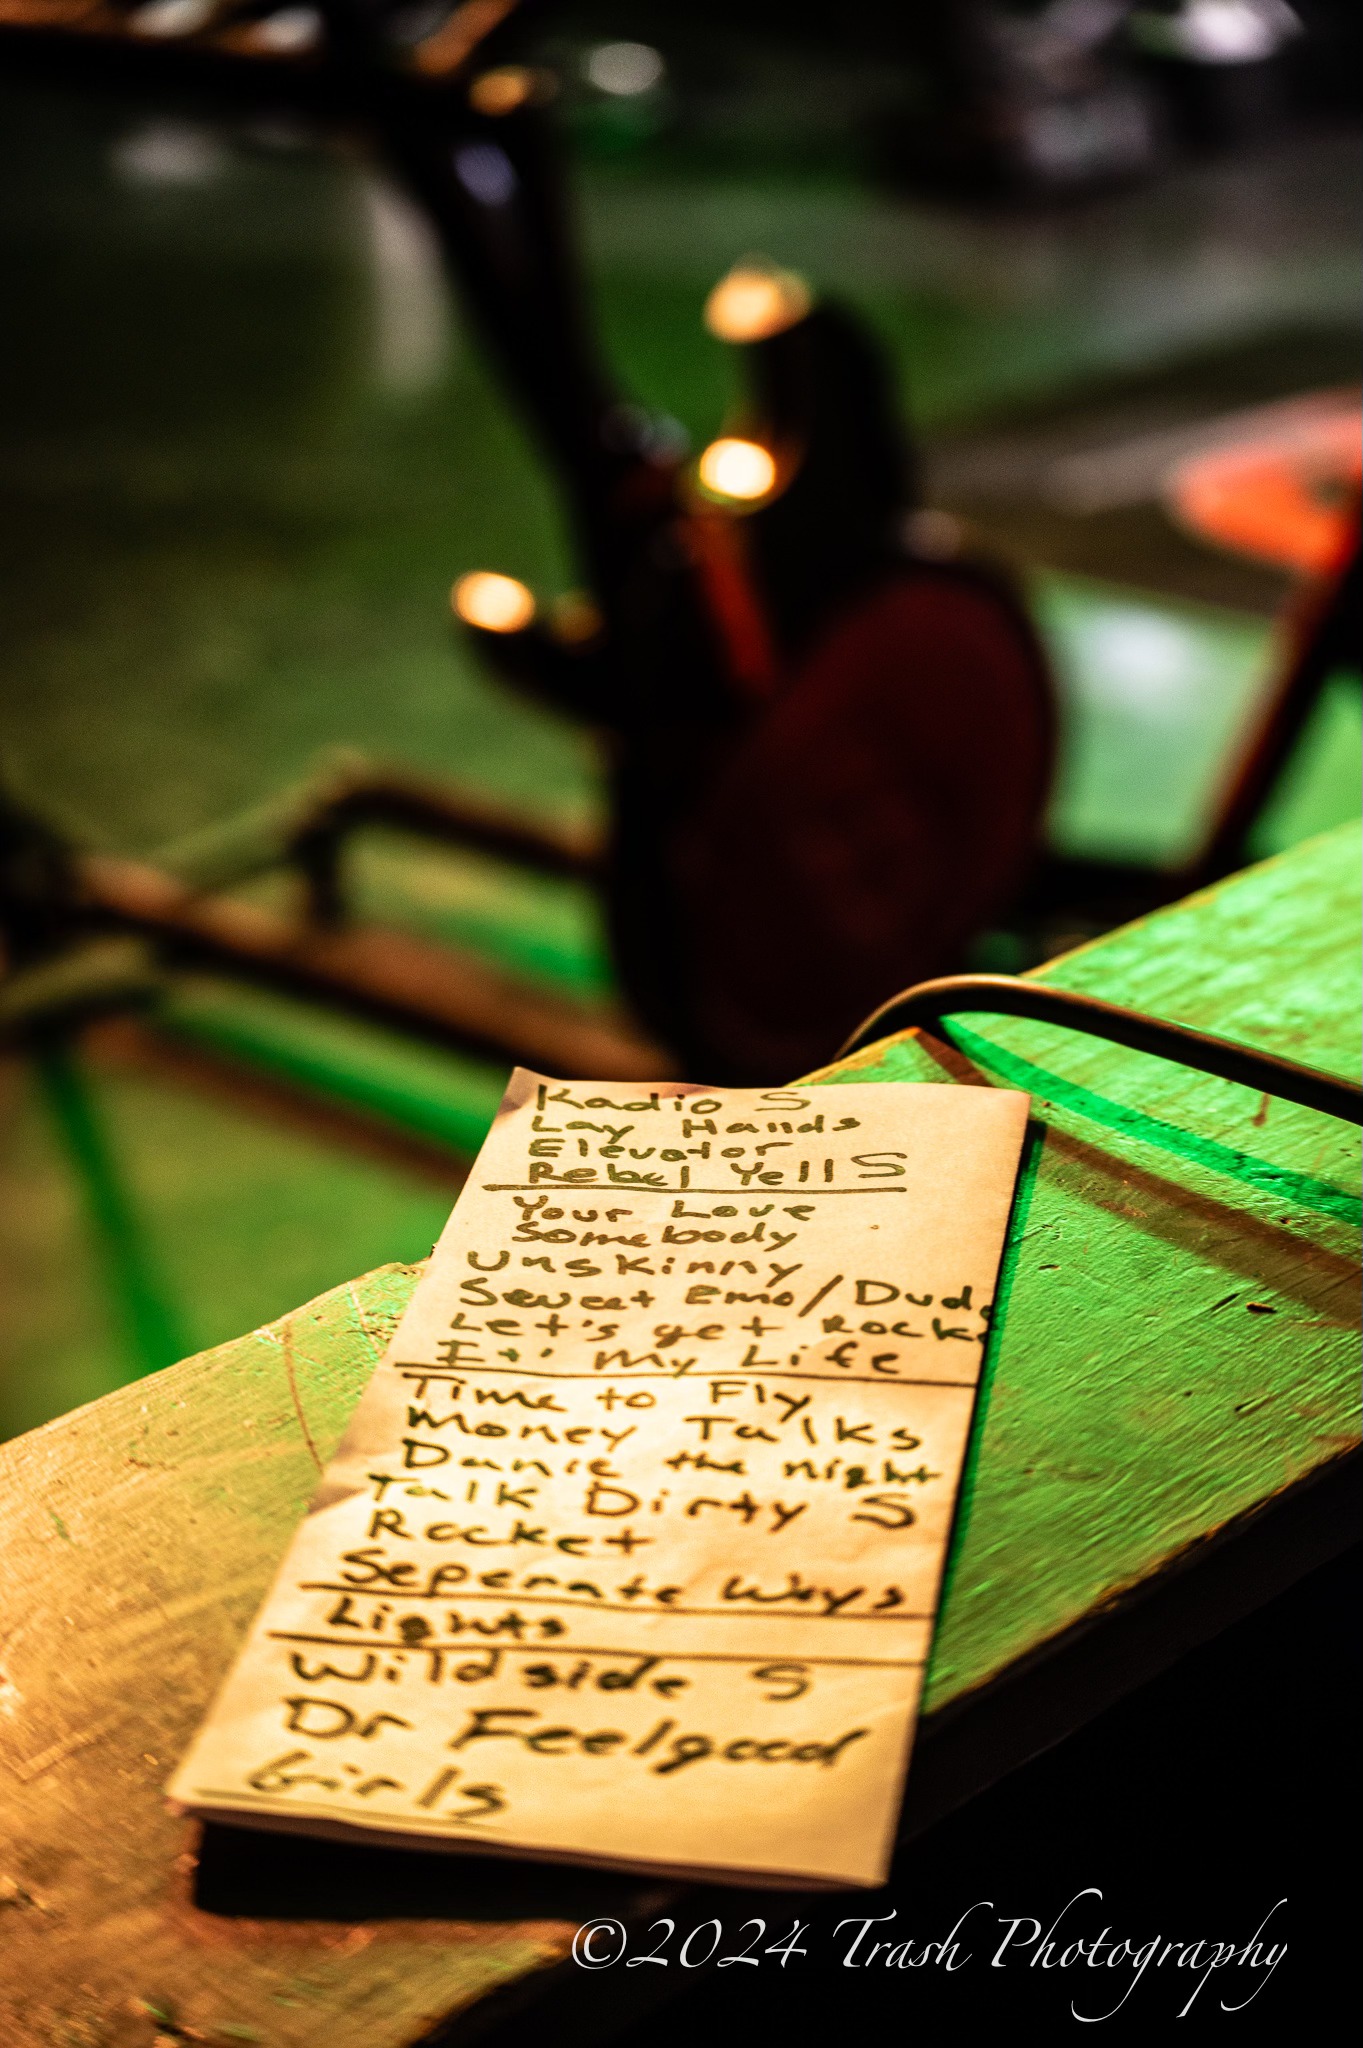 Radio S
Lay Hands
Elevator
Rebel Yell S
Your Love
Somebody
Unskinny
Sweet Emo/Dude
Let's get Rock
It' My Life
Time to Fly
Money Talks
Dance the night
Talk Dirty S
Rocket
Seperate Ways
Lights
Wildside S
Dr Feelgood
Girls
©2024 Trash Photography